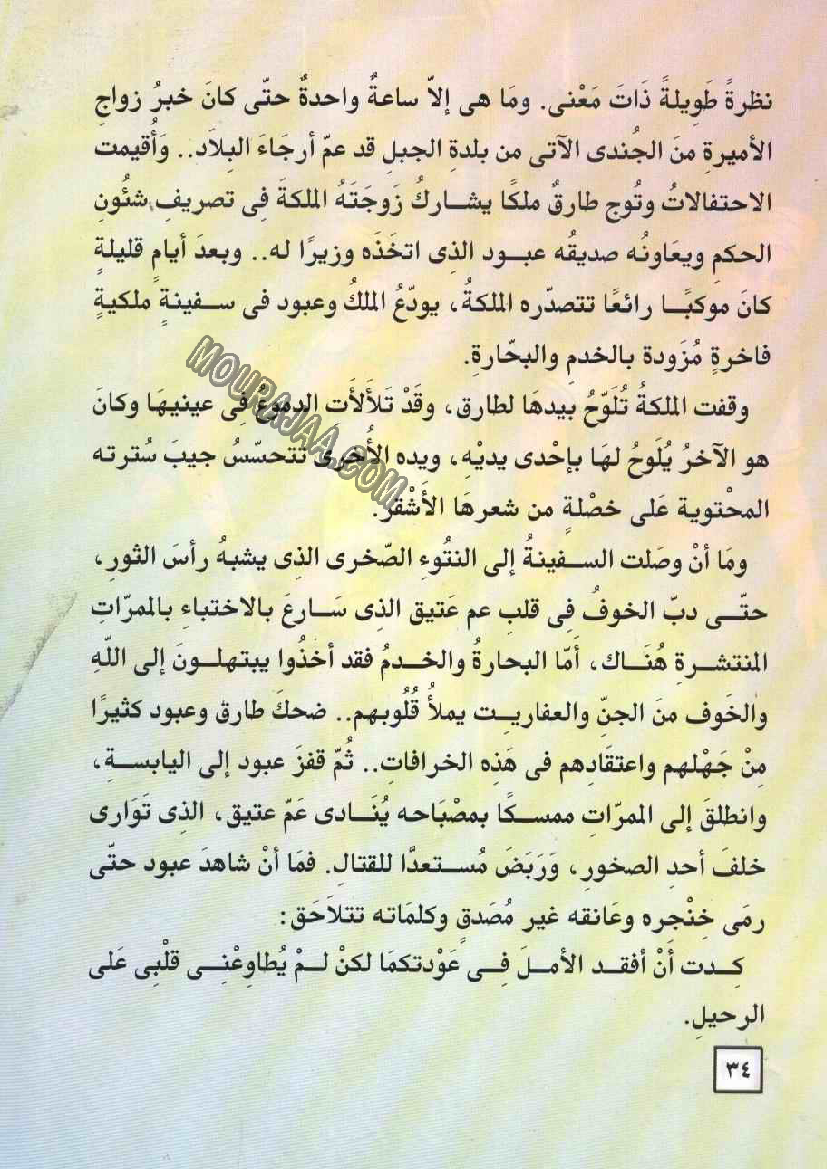 نظرةً طَوِيلةً ذَاتَ مَعْنى. ومَا هى إلاّ ساعةٌ واحدةٌ حتّى كانَ خبرُ زواجِ
الأميرةِ منَ الجُندى الآتى من بلدةِ الجبلِ قد عمّ أرجَاءَ البِلاَد.. وَأُقيمت
الاحتفالاتُ وتُوج طارقٌ ملكًا يشاركُ زَوجَتَهُ الملكةَ فِى تصريفِ شئُون
الحكمِ ويعَاونُه صديقُه عبود الذِى اتخَذَه وزيرًا له.. وبعدَ أيامٍ قليلةٍ
كانَ موكبًا رائعًا تتصدّره الملكةُ، يودّعُ الملكُ وعبود فى سفينةٍ ملكيةٍ
فاخرةٍ مُزَودة بالخدمِ والبحّارةِ.
وقفت الملكةُ تُلَوّحُ بيدهَا لطارق، وقَدْ تلأَلأَت الدموعُ فِى عينيهَا وكانَ
هو الآخرُ يُلَوحُ لهَا بإحْدى يديْهِ، ويده الأُخرى تتحسّسُ جيبَ سُترته
المحْتوية عَلى خصْلةٍ من شعرهَا الأَشْقر.
ومَا أنْ وصَلت السفينةُ إلى النتُوءِ الصّخرى الذِى يشبهُ رأسَ الثورِ،
حتّى دبّ الخوفُ فِى قلبِ عم عَتيق الذِى سَارعَ بالاختباءِ بالممرّاتِ
المنتشرةِ هُنَاك، أمّا البحارةُ والخدمُ فقد أخذُوا يبتهلونَ إلى اللّهِ
والخَوف منَ الجنّ والعفاريت يملأُ قُلُوبهم.. ضحكَ طارق وعبود كثيرًا
مِنْ جَهْلهم واعتقَادِهم فى هَذِه الخرافاتِ.. ثُمّ قفزَ عبود إلى اليابسةِ،
وانطلقَ إلى الممرّاتِ ممسكًا بمصْبَاحه يُنَادى عَمّ عتيق، الذِى تَوَارى
خلفَ أحدِ الصخورِ، وَرَبَضَ مُستعدّا للقتالِ. فمَا أنْ شاهدَ عبود حتّى
رمَى خِنْجره وعَانقه غير مُصَدقٍ وكلمَاته تتلاَحَق:
كِدت أَنْ أفقد الأملَ فِى عَوْدتكمَا لكنْ لمْ يُطاوعْنِى قلْبِى عَلى
الرحيلِ.
٣٤
MOURAJAA.COM